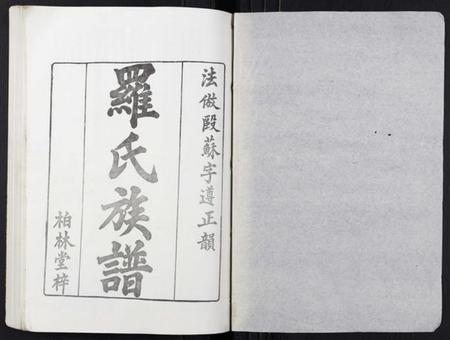 法倣毆蘇字遵正韻
羅氏族譜
柏林堂梓